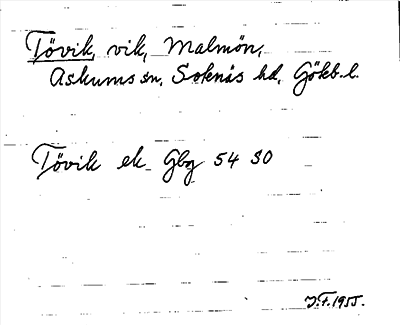 Tövik, vik, Malmön,
Askums sn, Sotenäs hd, Gökb. l.
Tövik ek Gbg 54 SO
J.F. 1955.